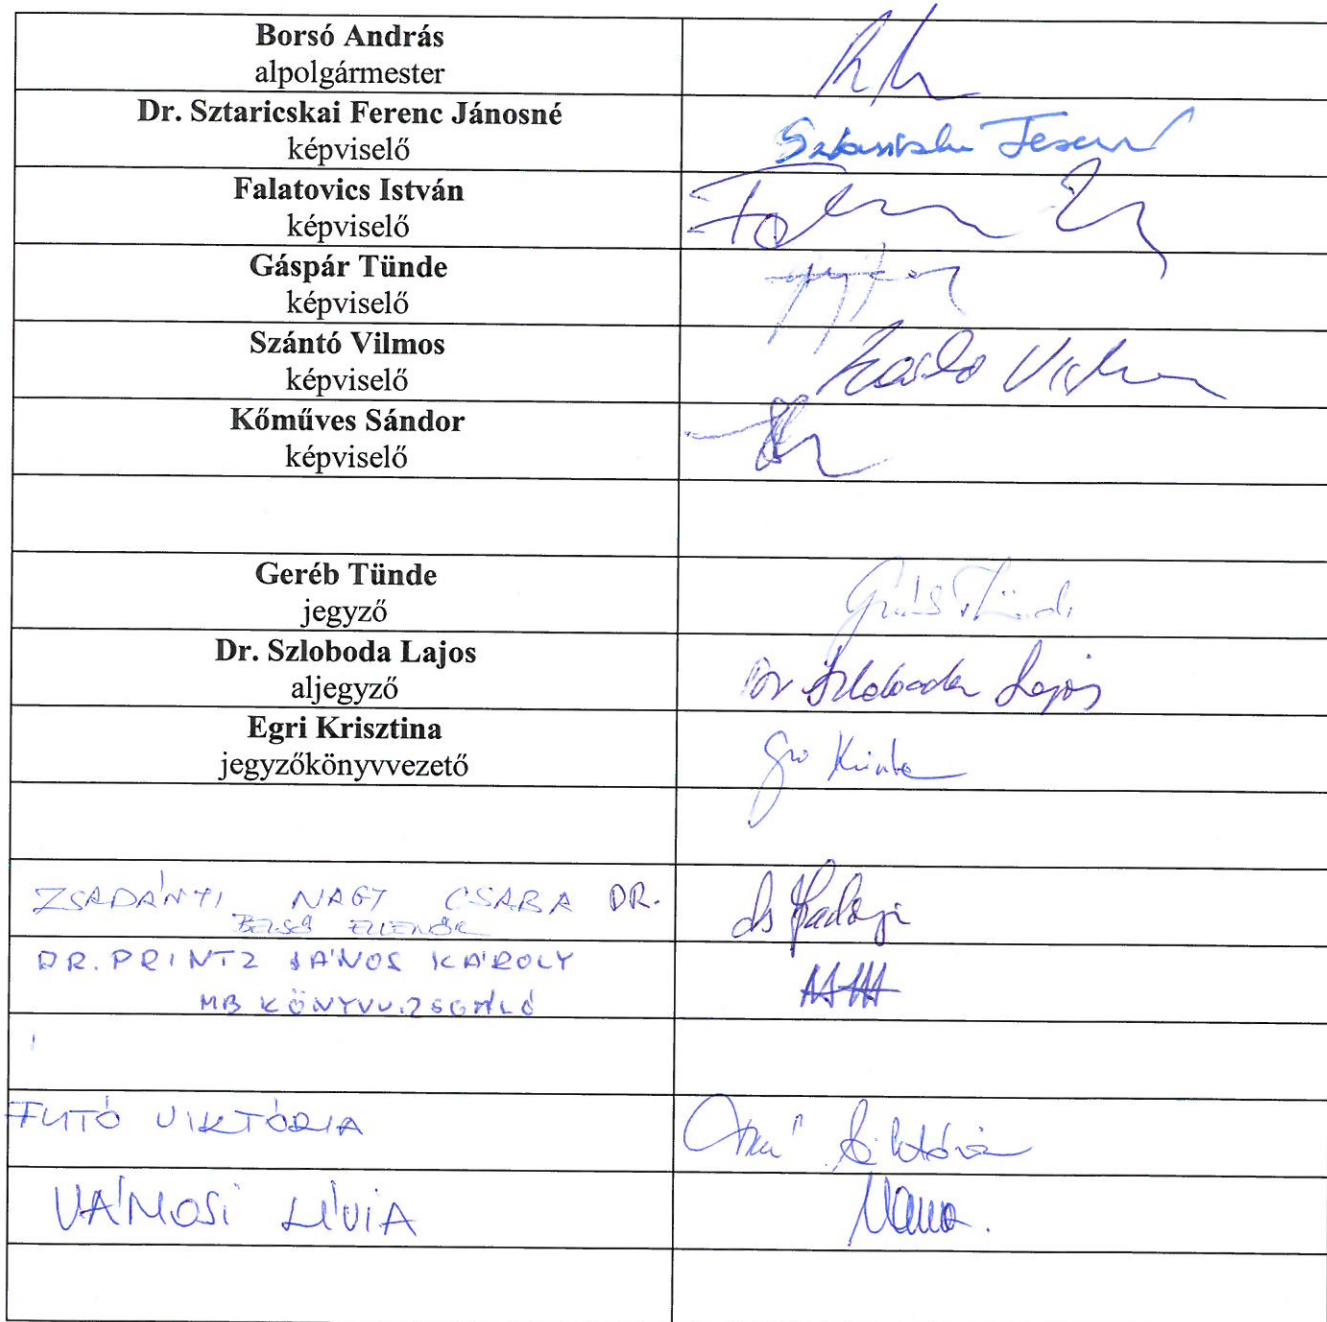 Borsó András
alpolgármester
Dr. Sztaricskai Ferenc Jánosné
képviselő
Falatovics István
képviselő
Gáspár Tünde
képviselő
Szántó Vilmos
képviselő
Kőműves Sándor
képviselő
Geréb Tünde
jegyző
Dr. Szloboda Lajos
aljegyző
Dr Szloboda Lajos
Egri Krisztina
jegyzőkönyvvezető
ZSADÁNYI NAGY CSABA DR.
BELSŐ ELLENŐR
DR. PRINTZ JÁNOS KÁROLY
MB KÖNYVVIZSGÁLÓ
FUTÓ VIKTÓRIA
Viktória
VÁMOSI LÍVIA